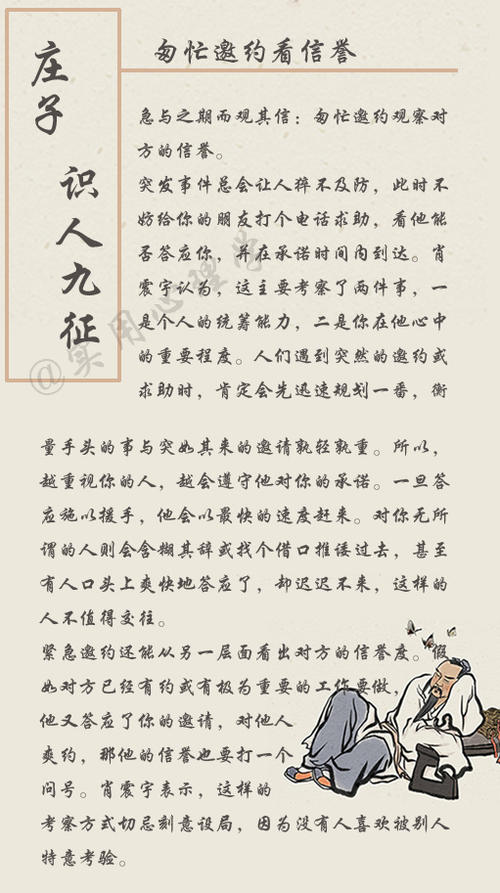 庄子
识人九征
匆忙邀约看信誉
急与之期而观其信：匆忙邀约观察对
方的信誉。
突发事件总会让人猝不及防，此时不
妨给你的朋友打个电话求助，看他能
否答应你，并在承诺时间内到达。肖
震宇认为，这主要考察了两件事，一
是个人的统筹能力，二是你在他心中
的重要程度。人们遇到突然的邀约或
求助时，肯定会先迅速规划一番，衡
量手头的事与突如其来的邀请孰轻孰重。所以，
越重视你的人，越会遵守他对你的承诺。一旦答
应施以援手，他会以最快的速度赶来。对你无所
谓的人则会含糊其辞或找个借口推诿过去，甚至
有人口头上爽快地答应了，却迟迟不来，这样的
人不值得交往。
紧急邀约还能从另一层面看出对方的信誉度。假
如对方已经有约或有极为重要的工作要做，
他又答应了你的邀请，对他人
爽约，那他的信誉也要打一个
问号。肖震宇表示，这样的
考察方式切忌刻意设局，因为没有人喜欢被别人
特意考验。
@实用心理学